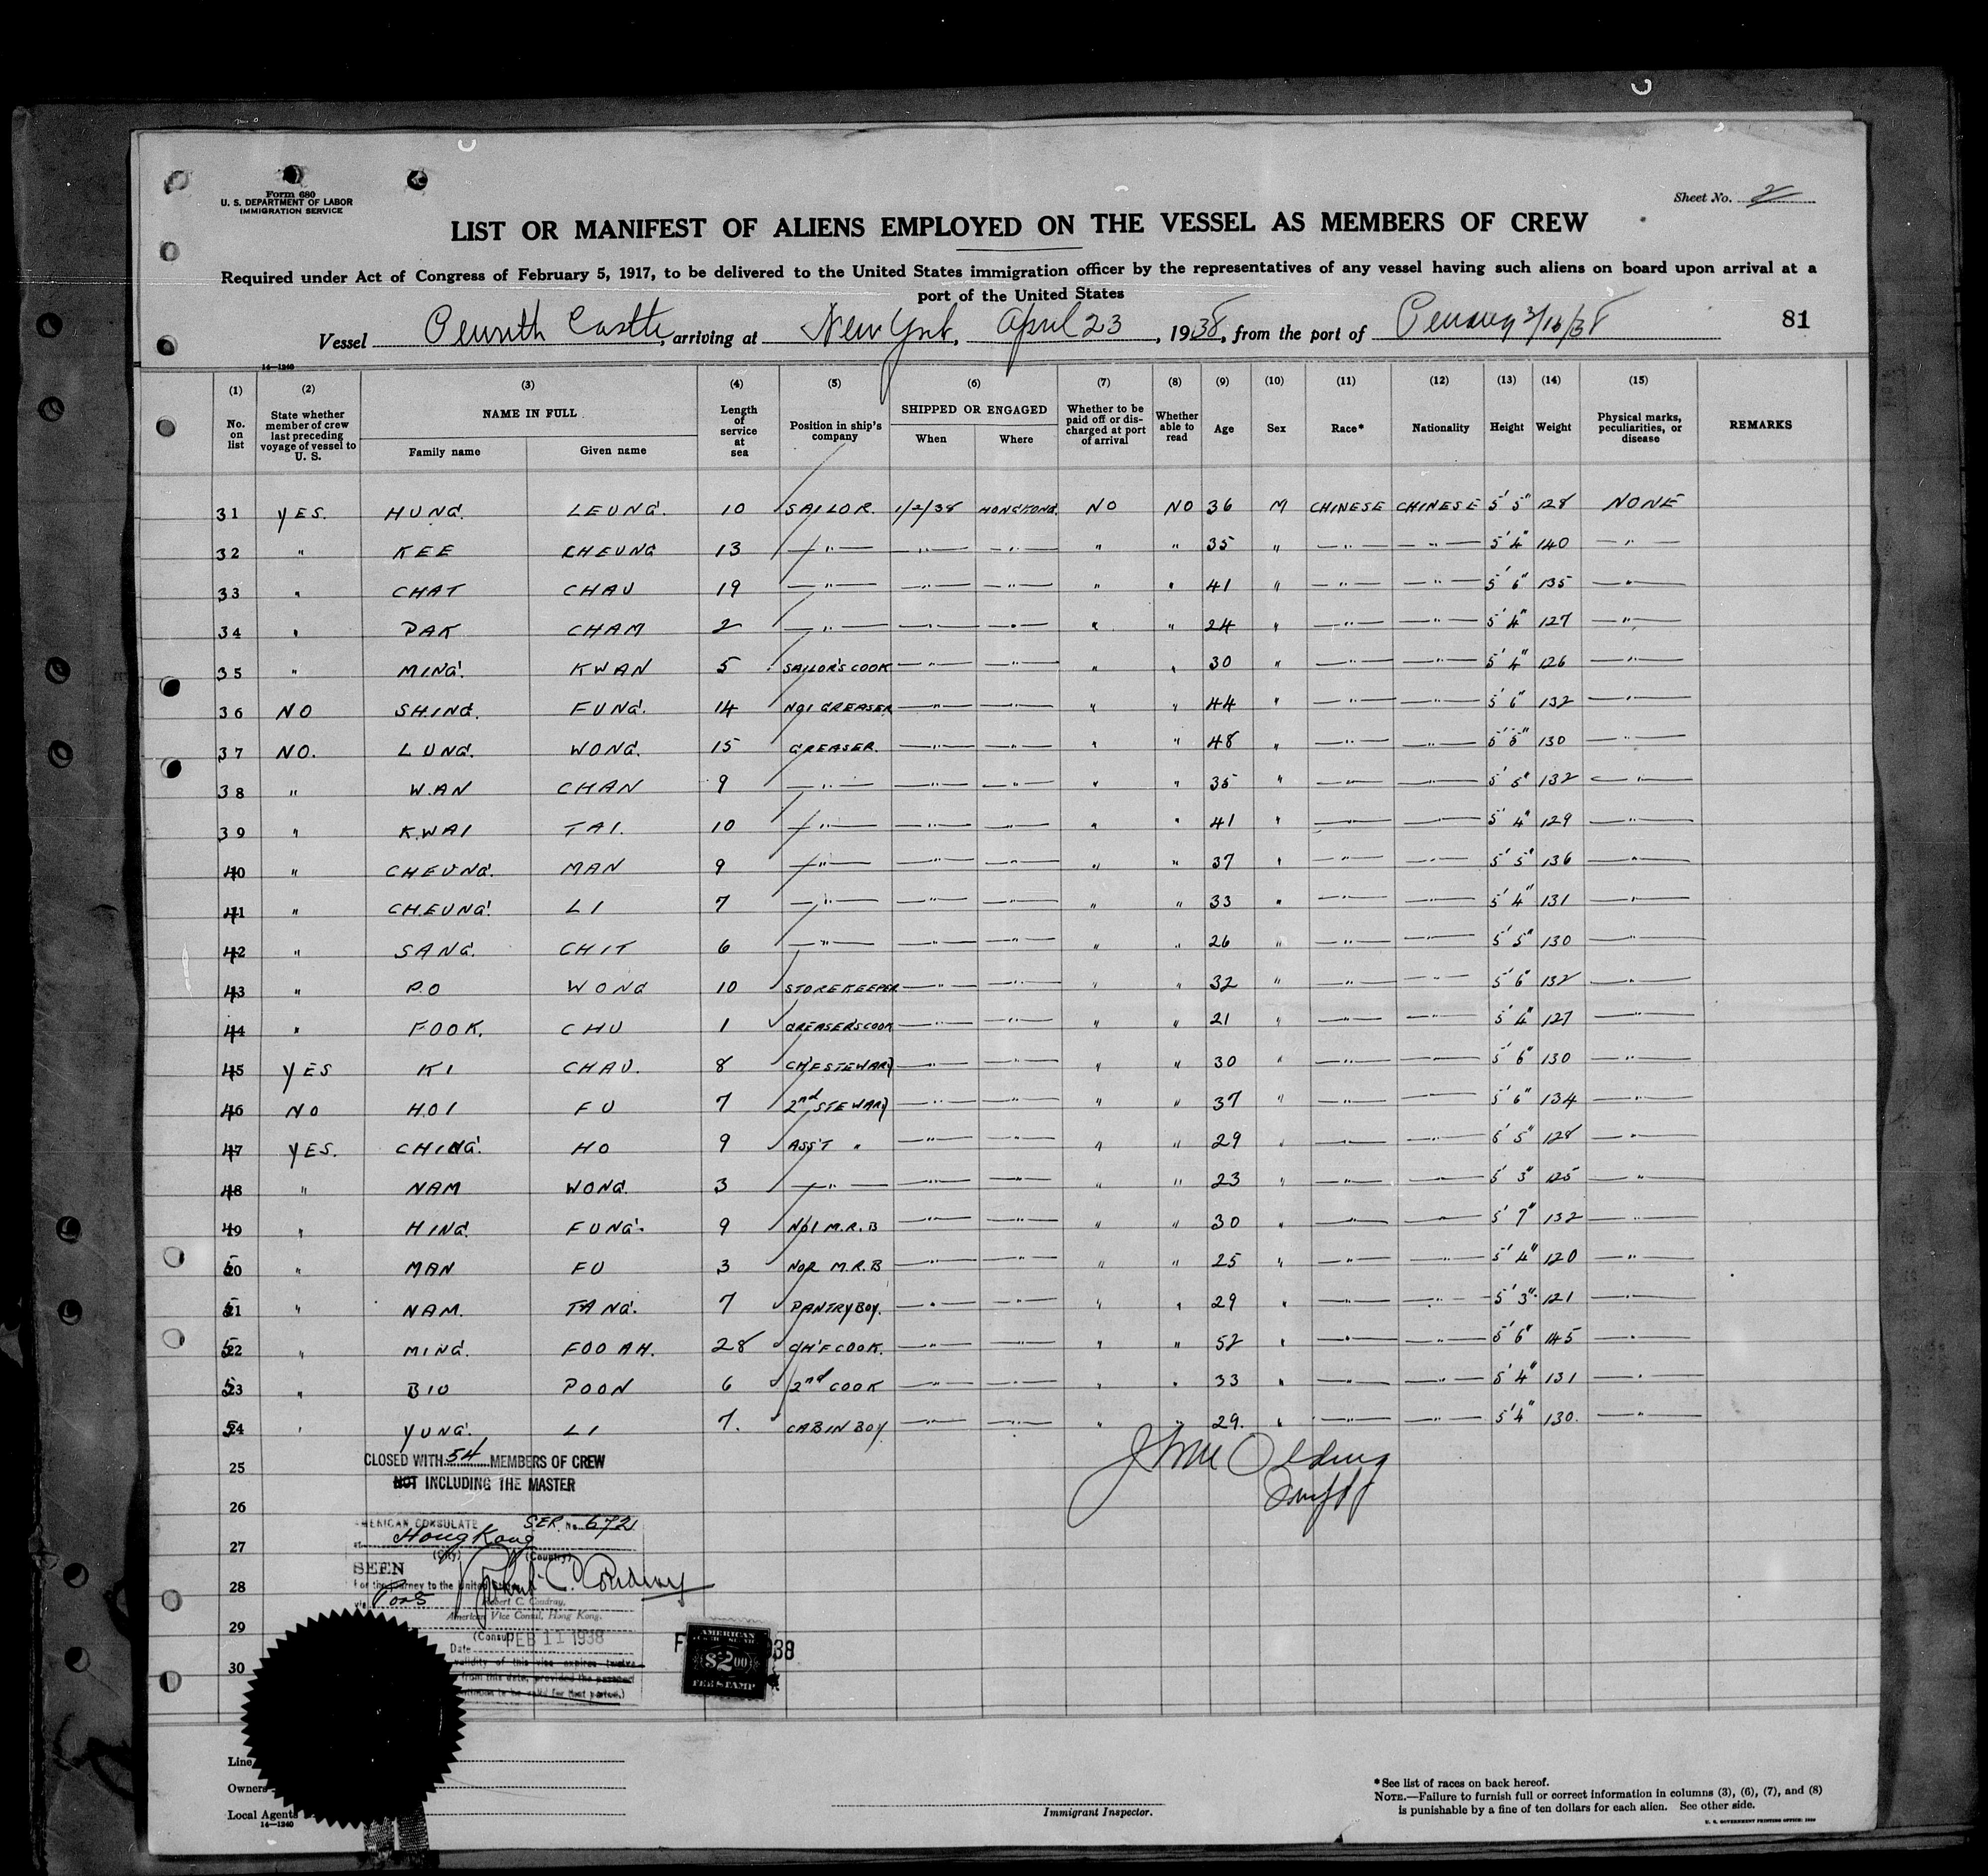 Form 680
U. S. DEPARTMENT OF LABOR
IMMIGRATION SERVICE
Sheet No. 2
LIST OR MANIFEST OF ALIENS EMPLOYED ON THE VESSEL AS MEMBERS OF CREW
Required under Act of Congress of February 5, 1917, to be delivered to the United States immigration officer by the representatives of any vessel having such aliens on board upon arrival at a
port of the United States
Vessel Penrith Castle, arriving at New York, April 23, 1938, from the port of Penang 3/16/38
81
14—1240
(1) (2) (3) (4) (5) (6) (7) (8) (9) (10) (11) (12) (13) (14) (15)
No. on list State whether member of crew last preceding voyage of vessel to U. S. NAME IN FULL Family name Given name Length of service at sea Position in ship's company SHIPPED OR ENGAGED When Where Whether to be paid off or discharged at port of arrival Whether able to read Age Sex Race* Nationality Height Weight Physical marks, peculiarities, or disease REMARKS
31 YES. HUNG. LEUNG. 10 SAILOR. 1/2/38 HONGKONG. NO NO 36 M CHINESE CHINESE 5' 5" 128 NONE
32 " KEE CHEUNG 13 " " " " " 35 " " " 5' 4" 140 "
33 " CHAT CHAU 19 " " " " " 41 " " " 5' 6" 135 "
34 " PAK CHAM 2 " " " " " 24 " " " 5' 4" 127 "
35 " MING. KWAN 5 SAILOR'S COOK " " " " 30 " " " 5' 4" 126 "
36 NO SHING. FUNG. 14 NO1 GREASER " " " " 44 " " " 5' 6" 132 "
37 NO. LUNG. WONG. 15 GREASER. " " " " 48 " " " 5' 5" 130 "
38 " WAN CHAN 9 " " " " " 35 " " " 5' 5" 132 "
39 " KWAI TAI. 10 " " " " " 41 " " " 5' 4" 129 "
40 " CHEUNG. MAN 9 " " " " " 37 " " " 5' 5" 136 "
41 " CHEUNG. LI 7 " " " " " 33 " " " 5' 4" 131 "
42 " SANG. CHIT 6 " " " " " 26 " " " 5' 5" 130 "
43 " PO WONG 10 STOREKEEPER " " " " 32 " " " 5' 6" 132 "
44 " FOOK. CHU 1 GREASER'S COOK " " " " 21 " " " 5' 4" 127 "
45 YES KI CHAU. 8 CHF STEWARD " " " " 30 " " " 5' 6" 130 "
46 NO HOI FU 7 2nd STEWARD " " " " 37 " " " 5' 6" 134 "
47 YES. CHING. HO 9 ASS'T " " " " " 29 " " " 5' 5" 128 "
48 " NAM WONG. 3 " " " " " 23 " " " 5' 3" 125 "
49 " HING FUNG. 9 NO1 M.R.B " " " " 30 " " " 5' 7" 132 "
50 " MAN FU 3 NO2 M.R.B " " " " 25 " " " 5' 4" 120 "
51 " NAM. TANG. 7 PANTRY BOY. " " " " 29 " " " 5' 3" 121 "
52 " MING. FOO AH. 28 CH'F COOK. " " " " 52 " " " 5' 6" 145 "
53 " BIU POON 6 2nd COOK " " " " 33 " " " 5' 4" 131 "
54 " YUNG. LI 7. CABIN BOY " " " " 29. " " " 5' 4" 130. "
CLOSED WITH 54 MEMBERS OF CREW
NOT INCLUDING THE MASTER
25
26
27
28
29
30
AMERICAN CONSULATE SER. No. 672
at Hong Kong
(City) (Country)
SEEN
For the journey to the United States
via
Robert C. Coudray,
American Vice Consul, Hong Kong.
(Consul)
Date FEB 11 1938
validity of this visa expires twelve
from this date, provided the passport
continues to be valid for that period.)
AMERICAN
$2.00
FEE STAMP
38
Line
Owners
Local Agents
14—1240
Immigrant Inspector.
*See list of races on back hereof.
NOTE.—Failure to furnish full or correct information in columns (3), (6), (7), and (8)
is punishable by a fine of ten dollars for each alien. See other side.
U. S. GOVERNMENT PRINTING OFFICE